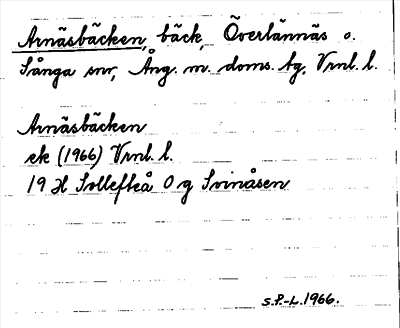 Arnäsbäcken, bäck, Överlännäs o.
Sånga snr, Ång. m. doms. tg, Vrnl. l.
Arnäsbäcken
ek (1966) Vrnl. l.
19 H Sollefteå 0 g Svinåsen
S.P.-L. 1966.